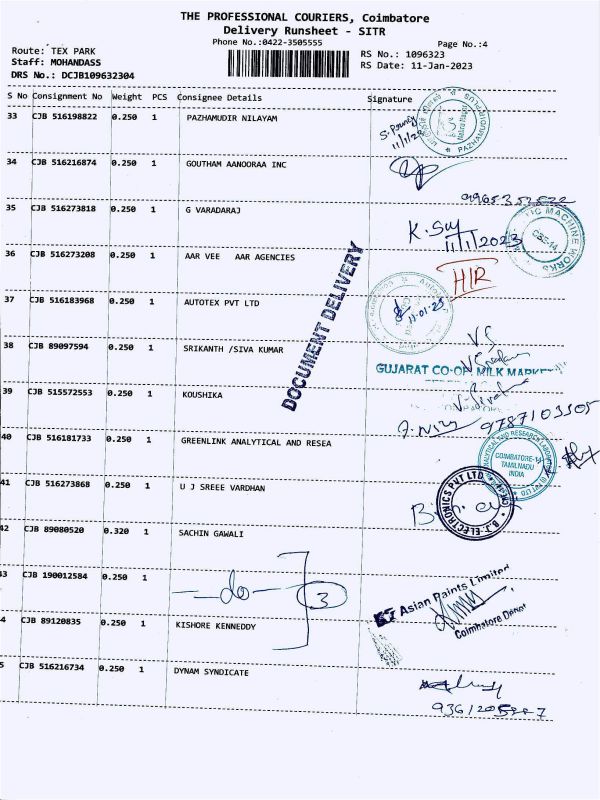 THE PROFESSIONAL COURIERS, Coimbatore
Delivery Runsheet - SITR
Phone No.:0422-3505555
Page No.:4
Route: TEX PARK
Staff: MOHANDASS
DRS No.: DCJB109632304
RS No.: 1096323
RS Date: 11-Jan-2023
S No Consignment No Weight PCS Consignee Details Signature
33 CJB 516198822 0.250 1 PAZHAMUDIR NILAYAM
34 CJB 516216874 0.250 1 GOUTHAM AANOORAA INC
35 CJB 516273818 0.250 1 G VARADARAJ
11/1/2023
36 CJB 516273208 0.250 1 AAR VEE AAR AGENCIES
H/R
37 CJB 516183968 0.250 1 AUTOTEX PVT LTD
11-01-23
DOCUMENT DELIVERY
38 CJB 89097594 0.250 1 SRIKANTH /SIVA KUMAR
VS
GUJARAT CO-OP. MILK MARKET
39 CJB 515572553 1 0.250 KOUSHIKA
9787103305
40 CJB 516181733 0.250 1 GREENLINK ANALYTICAL AND RESEA
COIMBATORE-14
TAMILNADU
INDIA
41 CJB 516273868 0.250 1 U J SREEE VARDHAN
B.J. ELECTRONICS PVT LTD
42 CJB 89080520 0.320 1 SACHIN GAWALI
43 CJB 190012584 0.250 1 —do— 3
Asian Paints Limited
Coimbatore Depot
4 CJB 89120835 0.250 1 KISHORE KENNEDDY
5 CJB 516216734 0.250 1 DYNAM SYNDICATE